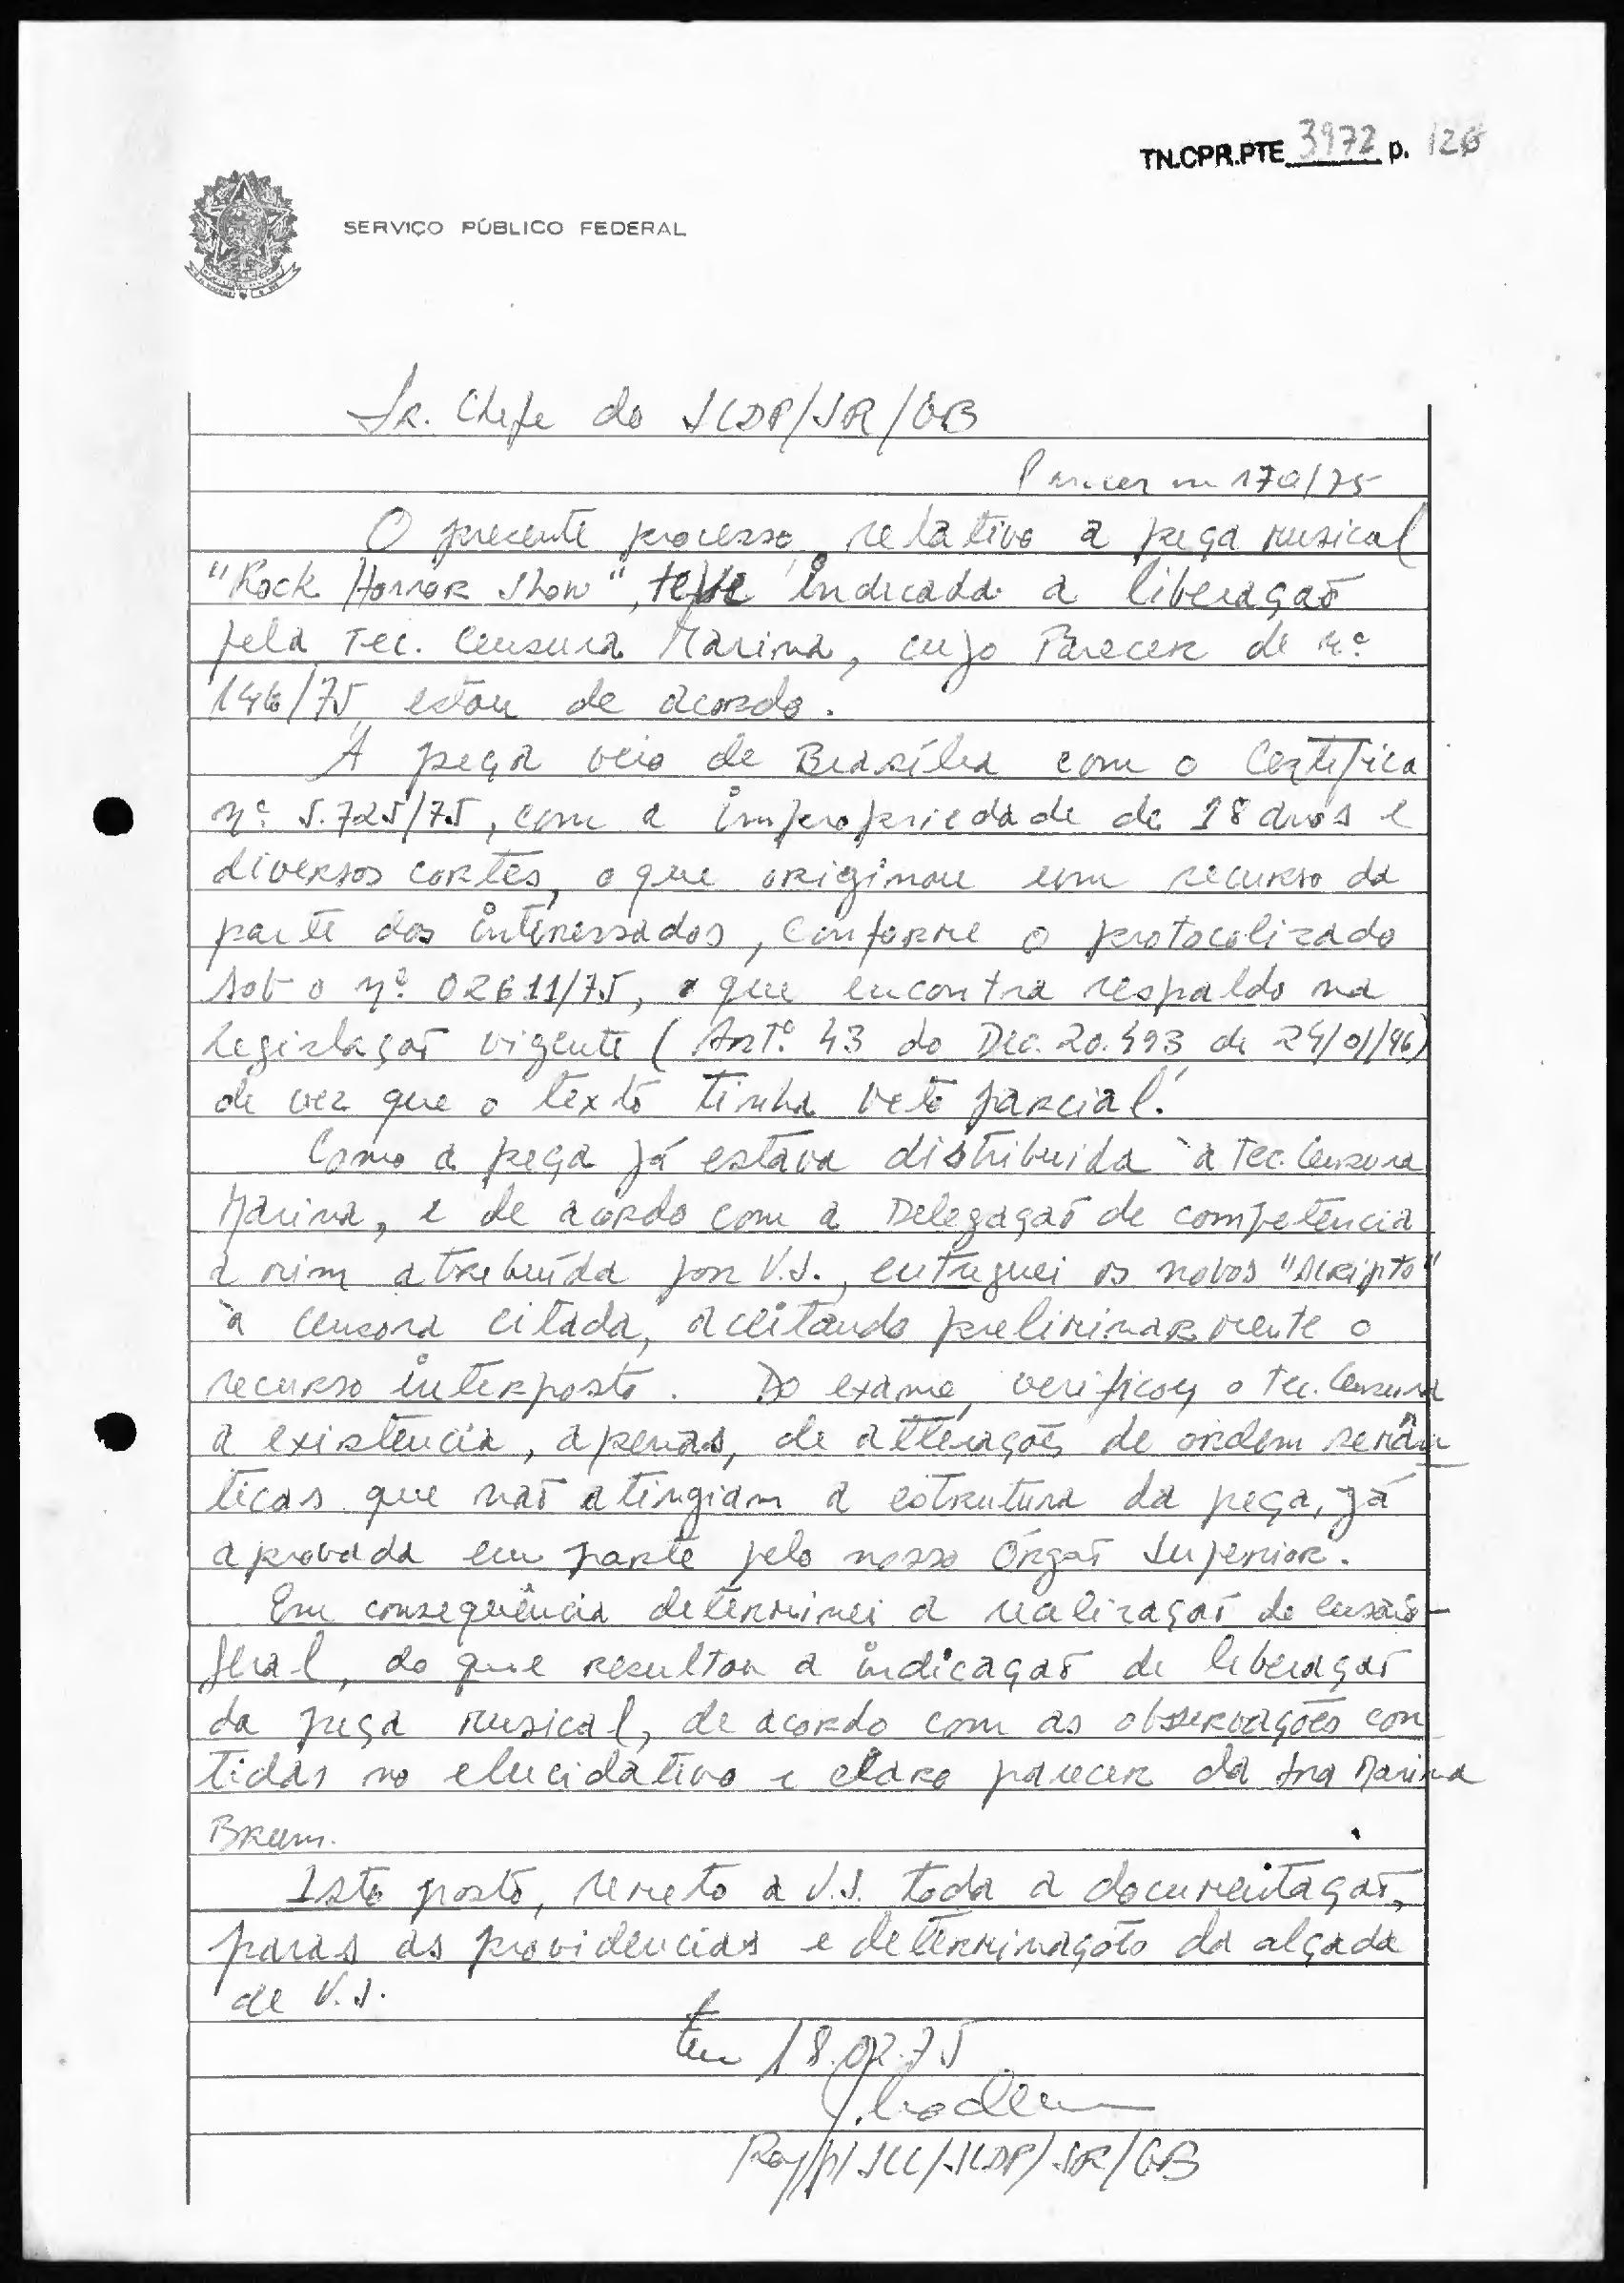 TN.CPR.PTE 3972 p. 126
SERVIÇO PÚBLICO FEDERAL
Sr. Chefe do SCDP/SR/GB
Parecer nº 170/75
O presente processo, relativo a peça musical
"Rock Horror Show", teve indicada a liberação
pela Tec. Censura Marina, cujo Parecer de nº
146/75, estou de acordo.
A peça veio de Brasília com o Certifica
nº 5.725/75, com a impropriedade de 18 anos e
diversos cortes, o que originou um recurso da
parte dos interessados, conforme o protocolizado
sob o nº 02611/75, o que encontra respaldo na
legislação vigente (Artº 43 do Dec. 20.493 de 24/01/46)
de vez que o texto tinha veto parcial.
Como a peça já estava distribuida à Tec. Censura
Marina, e de acordo com a Delegação de competência
a mim atribuída por V.S., entreguei os novos "scripts"
à censora citada, aceitando preliminarmente o
recurso interposto. Do exame, verificou, o Tec. Censura
a existência, apenas, de alterações de ordem semân
ticas que não atingiam a estrutura da peça, já
aprovada em parte pelo nosso Órgão Superior.
Em consequência determinei a realização de ensaio-
geral, do que resultou a indicação de liberação
da peça musical, de acordo com as observações con
tidas no elucidativo e claro parecer da sra Marina
Brum.
Isto posto, remeto a V.S. toda a documentação,
paras as providencias e determinações da alçada
de V.S.
Em 18.02.75
SCC/SCDP/SR/GB